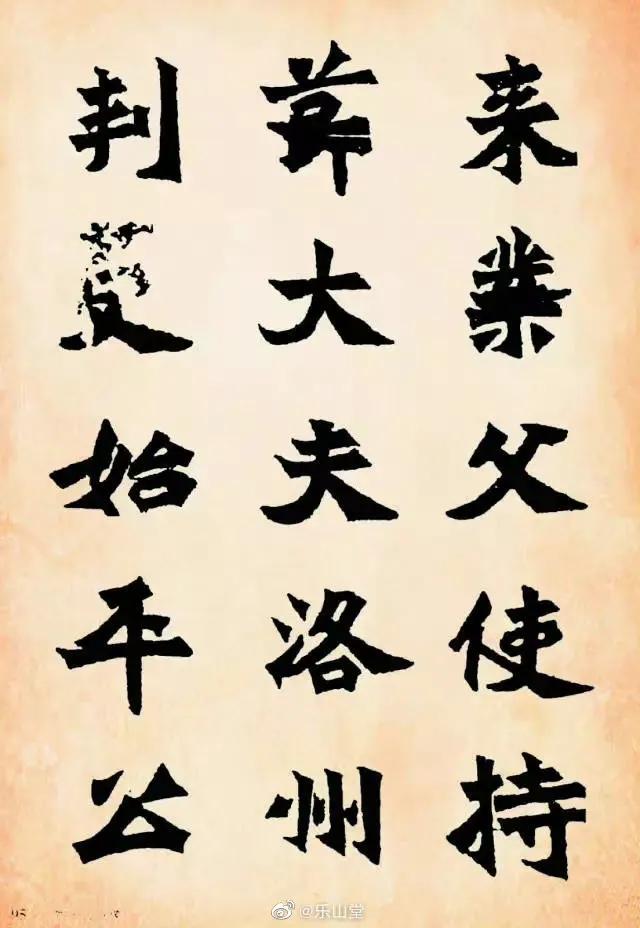 来業父使持
莭大夫洛州
刺史始平公
@乐山堂